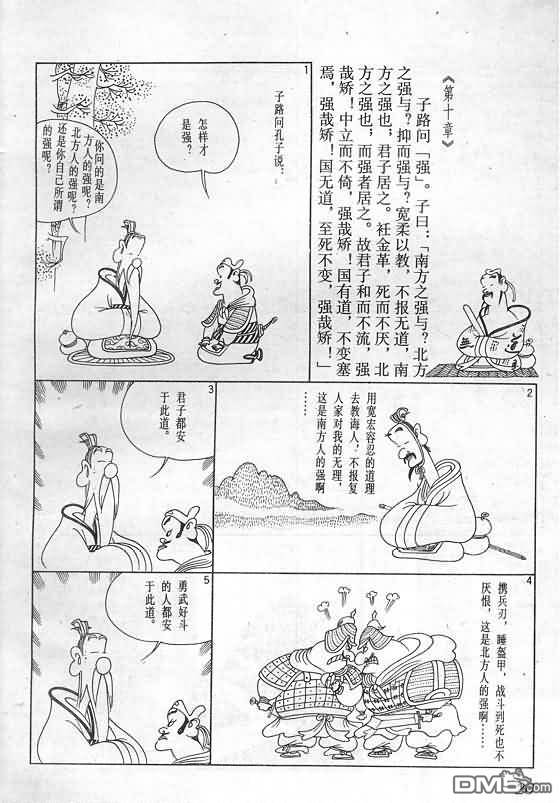 《第十章》
子路问「强」。子曰：「南方之强与？北方
之强与？抑而强与？宽柔以教，不报无道，南
方之强也，君子居之。衽金革，死而不厌，北
方之强也，而强者居之。故君子和而不流，强
哉矫！中立而不倚，强哉矫！国有道，不变塞
焉，强哉矫！国无道，至死不变，强哉矫！」
1
子路问孔子说：
怎样才
是强？
你问的是南
方人的强呢？
北方人的强呢？
还是你自己所谓
的强呢？
2
用宽宏容忍的道理
去教诲人，不报复
人家对我的无理，
这是南方人的强啊
……
3
君子都安
于此道。
4
携兵刃，睡盔甲，战斗到死也不
厌恨，这是北方人的强啊……
5
勇武好斗
的人都安
于此道。
DM5.com